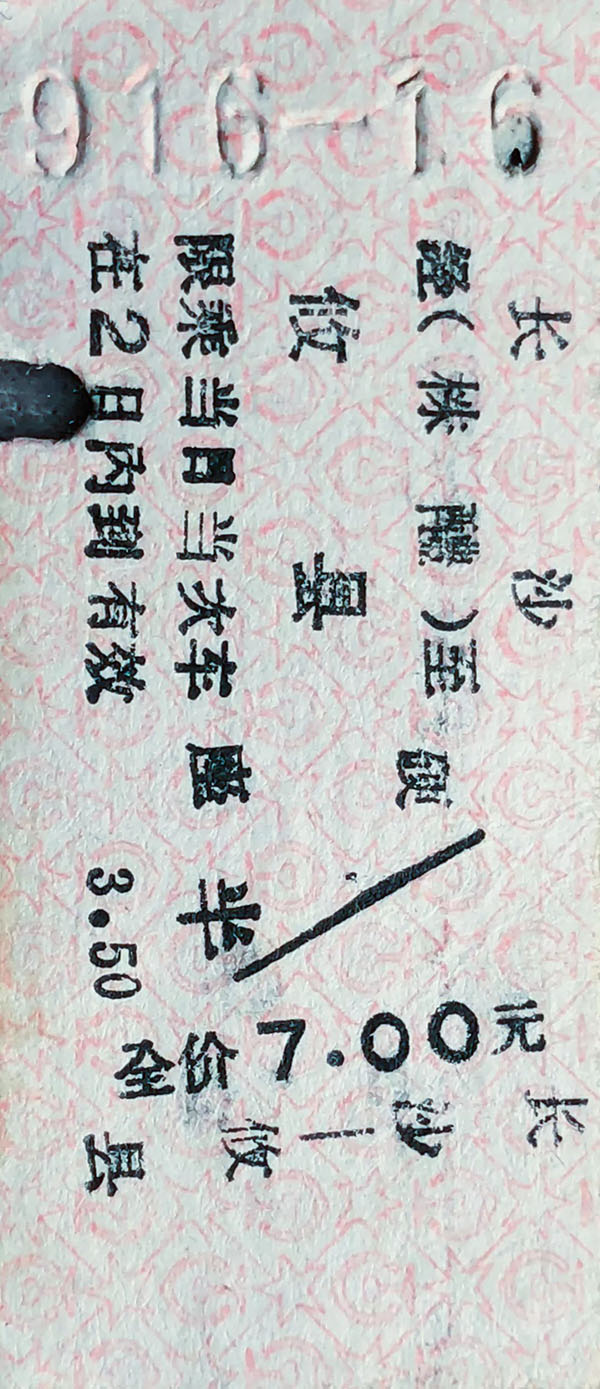 916-16
长沙
经(株醴)至硬
攸县
限乘当日当次车座半
在2日内到有效 3.50
全价7.00元
长沙—攸县